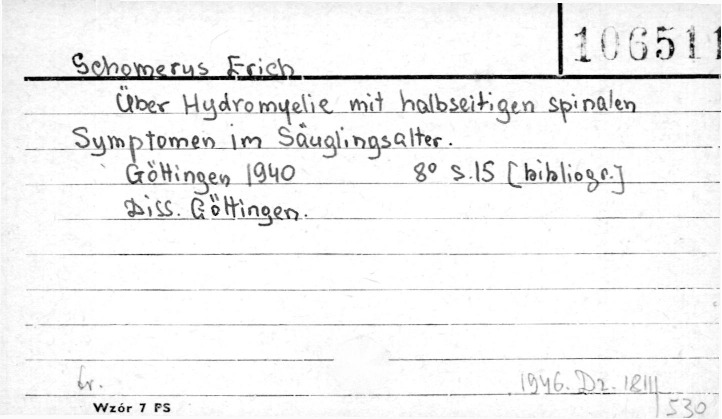 106511
Schomerus Erich
Über Hydromyelie mit halbseitigen spinalen
Symptomen im Säuglingsalter.
Göttingen 1940 8° S.15 [bibliogr.]
Diss. Göttingen.
1946. Dz. 1811
530
Wzór 7 PS